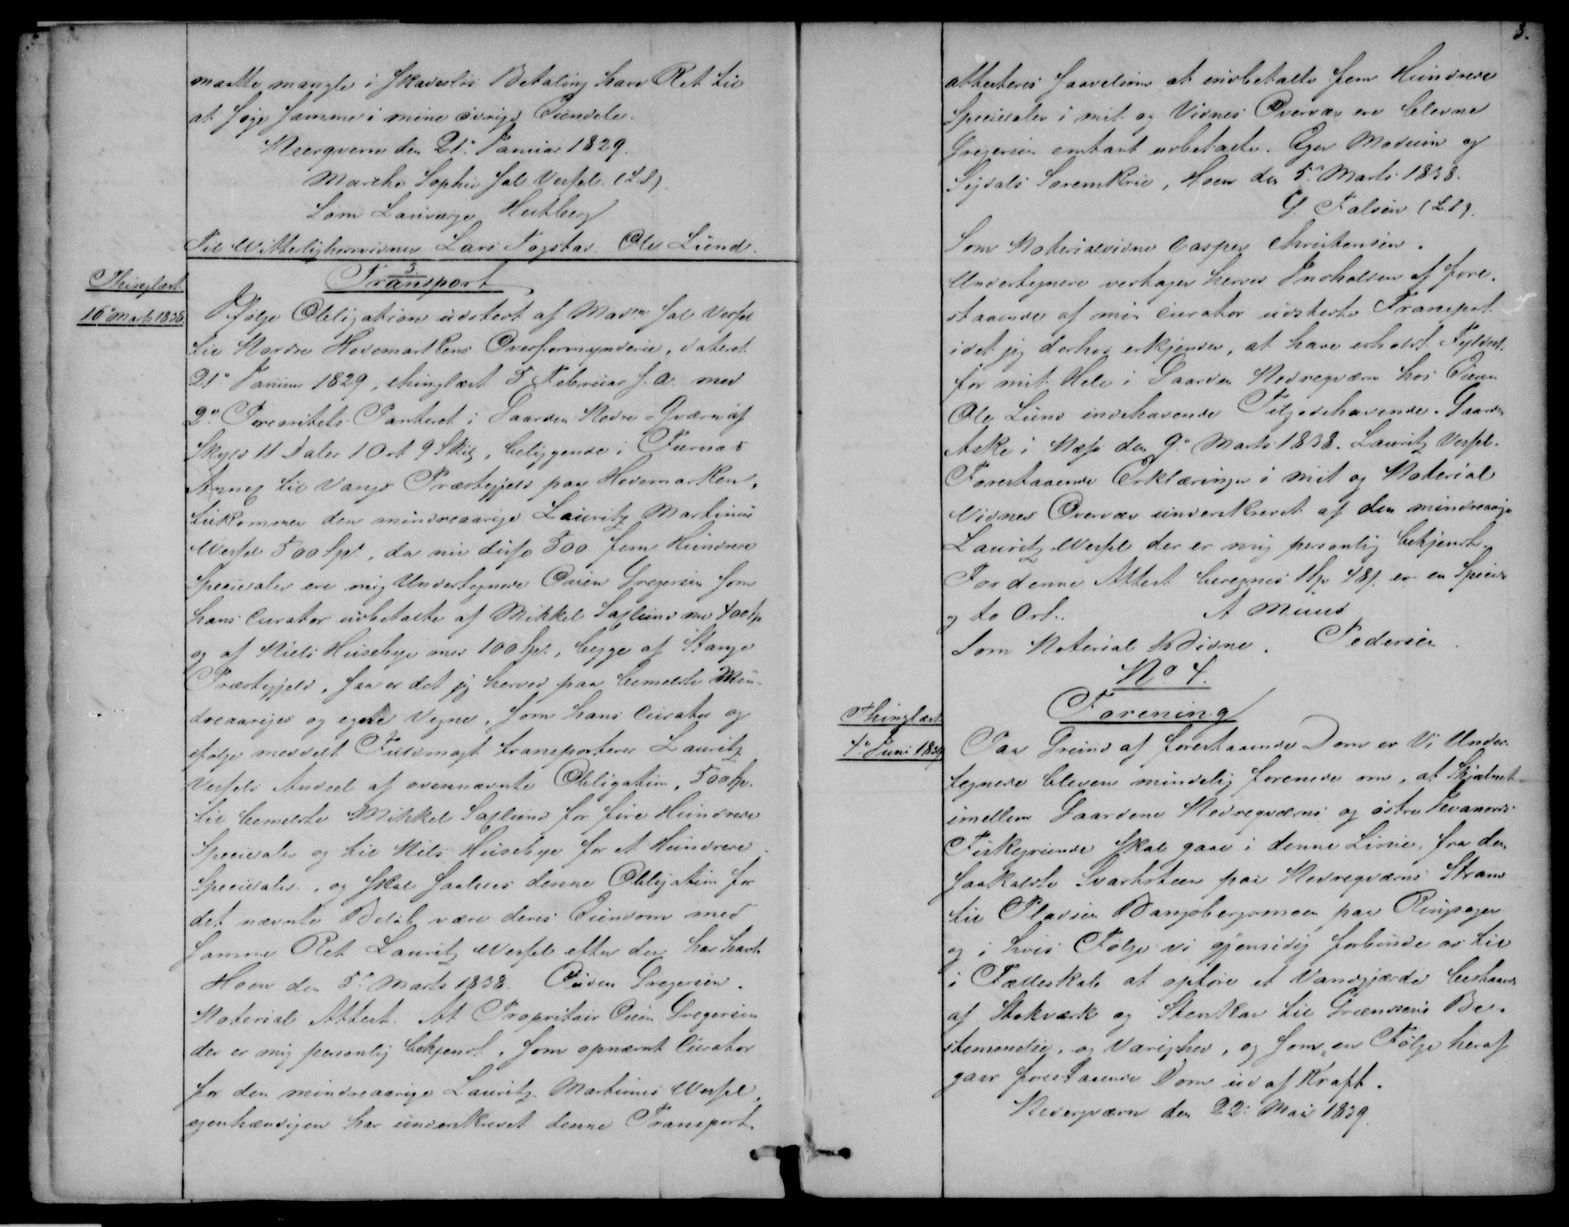 maatte mangle i skadeslös Betaling have Ret til
at söge samme i mine övrige Eiendele.
Nedregværn den 21de Januar 1829.
Marthe Sophie sal Wessel (L.S).
Som Laugværge Hertberg
Til Vitterlighedsvidner Lars Fogstad. Ole Lund.
3.
Transport
Thinglæst
16de Marts 1838
Ifølge Obligation udstedt af Madm sal Wessel
til Nordre Hedemarkens Overformynderie, dateret
21de Januar 1829, thinglæst 5 Februar s. a. med
2den Prioritets Panteret i Gaarden Nedre-Qværn af
Skyld 11 Daler 1 Ort 9 Skil, beliggende i Furnæs
Annex til Vangs Præstegjeld paa Hedemarken,
tilkommer den mindreaarige Lauritz Martinus
Wessel 500 Spd, da nu disse 500 fem Hundrede
Speciedaler ere mig Undertegnede Ouen Gregersen som
hans Curator udbetalte af Mikkel Saxlund med 400 Sp
og af Niels Husebye med 100 Sp., begge af Stange
Præstegjeld, saa er det jeg herved paa bemeldte Min-
dreaariges og egne Vegne, som hans Curator og
efter meddelt Fuldmagt transporterer Lauritz
Wessels Andeel af ovennævnte Obligation, 500 Sp.
til bemeldte Mikkel Saxlund for fire Hundrede
Speciedaler og til Niels Husebye for et Hundrede
Speciedaler, og skal saaledes denne Obligation for
det nævnte Belöb være deres Eiendom med
samme Ret Lauritz Wessel efter den har havt
Hoen den 5te Marts 1838. Ouen Gregersen.
Notorial Attest. At Proprietair Ouen Gregersen
der er mig personlig bekjendt, som opnævnt Curator
for den mindreaarige Lauritz Martinus Wessel,
egenhændigen har underskrevet denne Transport,
3.
attesteres saavelsom at indbetalte fem Hundrede
Speciedaler i mit og Vidnes Overvær ere blevne
Gregersen contant udbetalte. Eger Modum og
Sigdals Sorenskrie, Hoen den 5te Marts 1838.
G Falsen (L.S).
Som Notorialvidne Casper Christensen.
Undertegnede vedtager herved Indholdet af fore-
staaende af min Curator udstedte Transport
idet jeg derhos erkjender, at have erholdt Fyldest
for mit hele i Gaarden Nedregværn hos Eieren
Ole Lund indehavende Tilgodehavende. Gaarden
Aske i Næs den 9de Marts 1838. Lauritz Wessel.
Forestaaende Erklæring i mit og Notorial
Vidnes Overvær underskrevet af den mindreaarige
Lauritz Wessel der er mig personlig bekjendt.
For denne Attest beregnes 1 Sp 48 s. er en Specie
og to Ort. A Muus
Som Notorial Vidne. Pedersen.
No 4.
Forening
Thinglæst
4de Juni 1839
Paa Grund af forestaaende Dom er Vi Under-
tegnede bleven mindelig forenede om, at Skjælnet
imellem Gaardene Nedregværns og östre
Fiskegrunde skal gaae i denne Linie, fra den
saakaldte Svartsteen paa Nedregværns Strand
til Pladsen Bangsbergsmoen paa Ringsager
og i hvis Følge vi gjensidig forbinde os til
i Fælleskab at opføre et Vandgjærde bestaaende
af Stokværk og Steenkar til Grændsens Be-
stemmelse, og Varighed, og som en Følge heraf
gaar forestaaende Dom ud af Kraft.
Nedregværn den 22de Mai 1839.